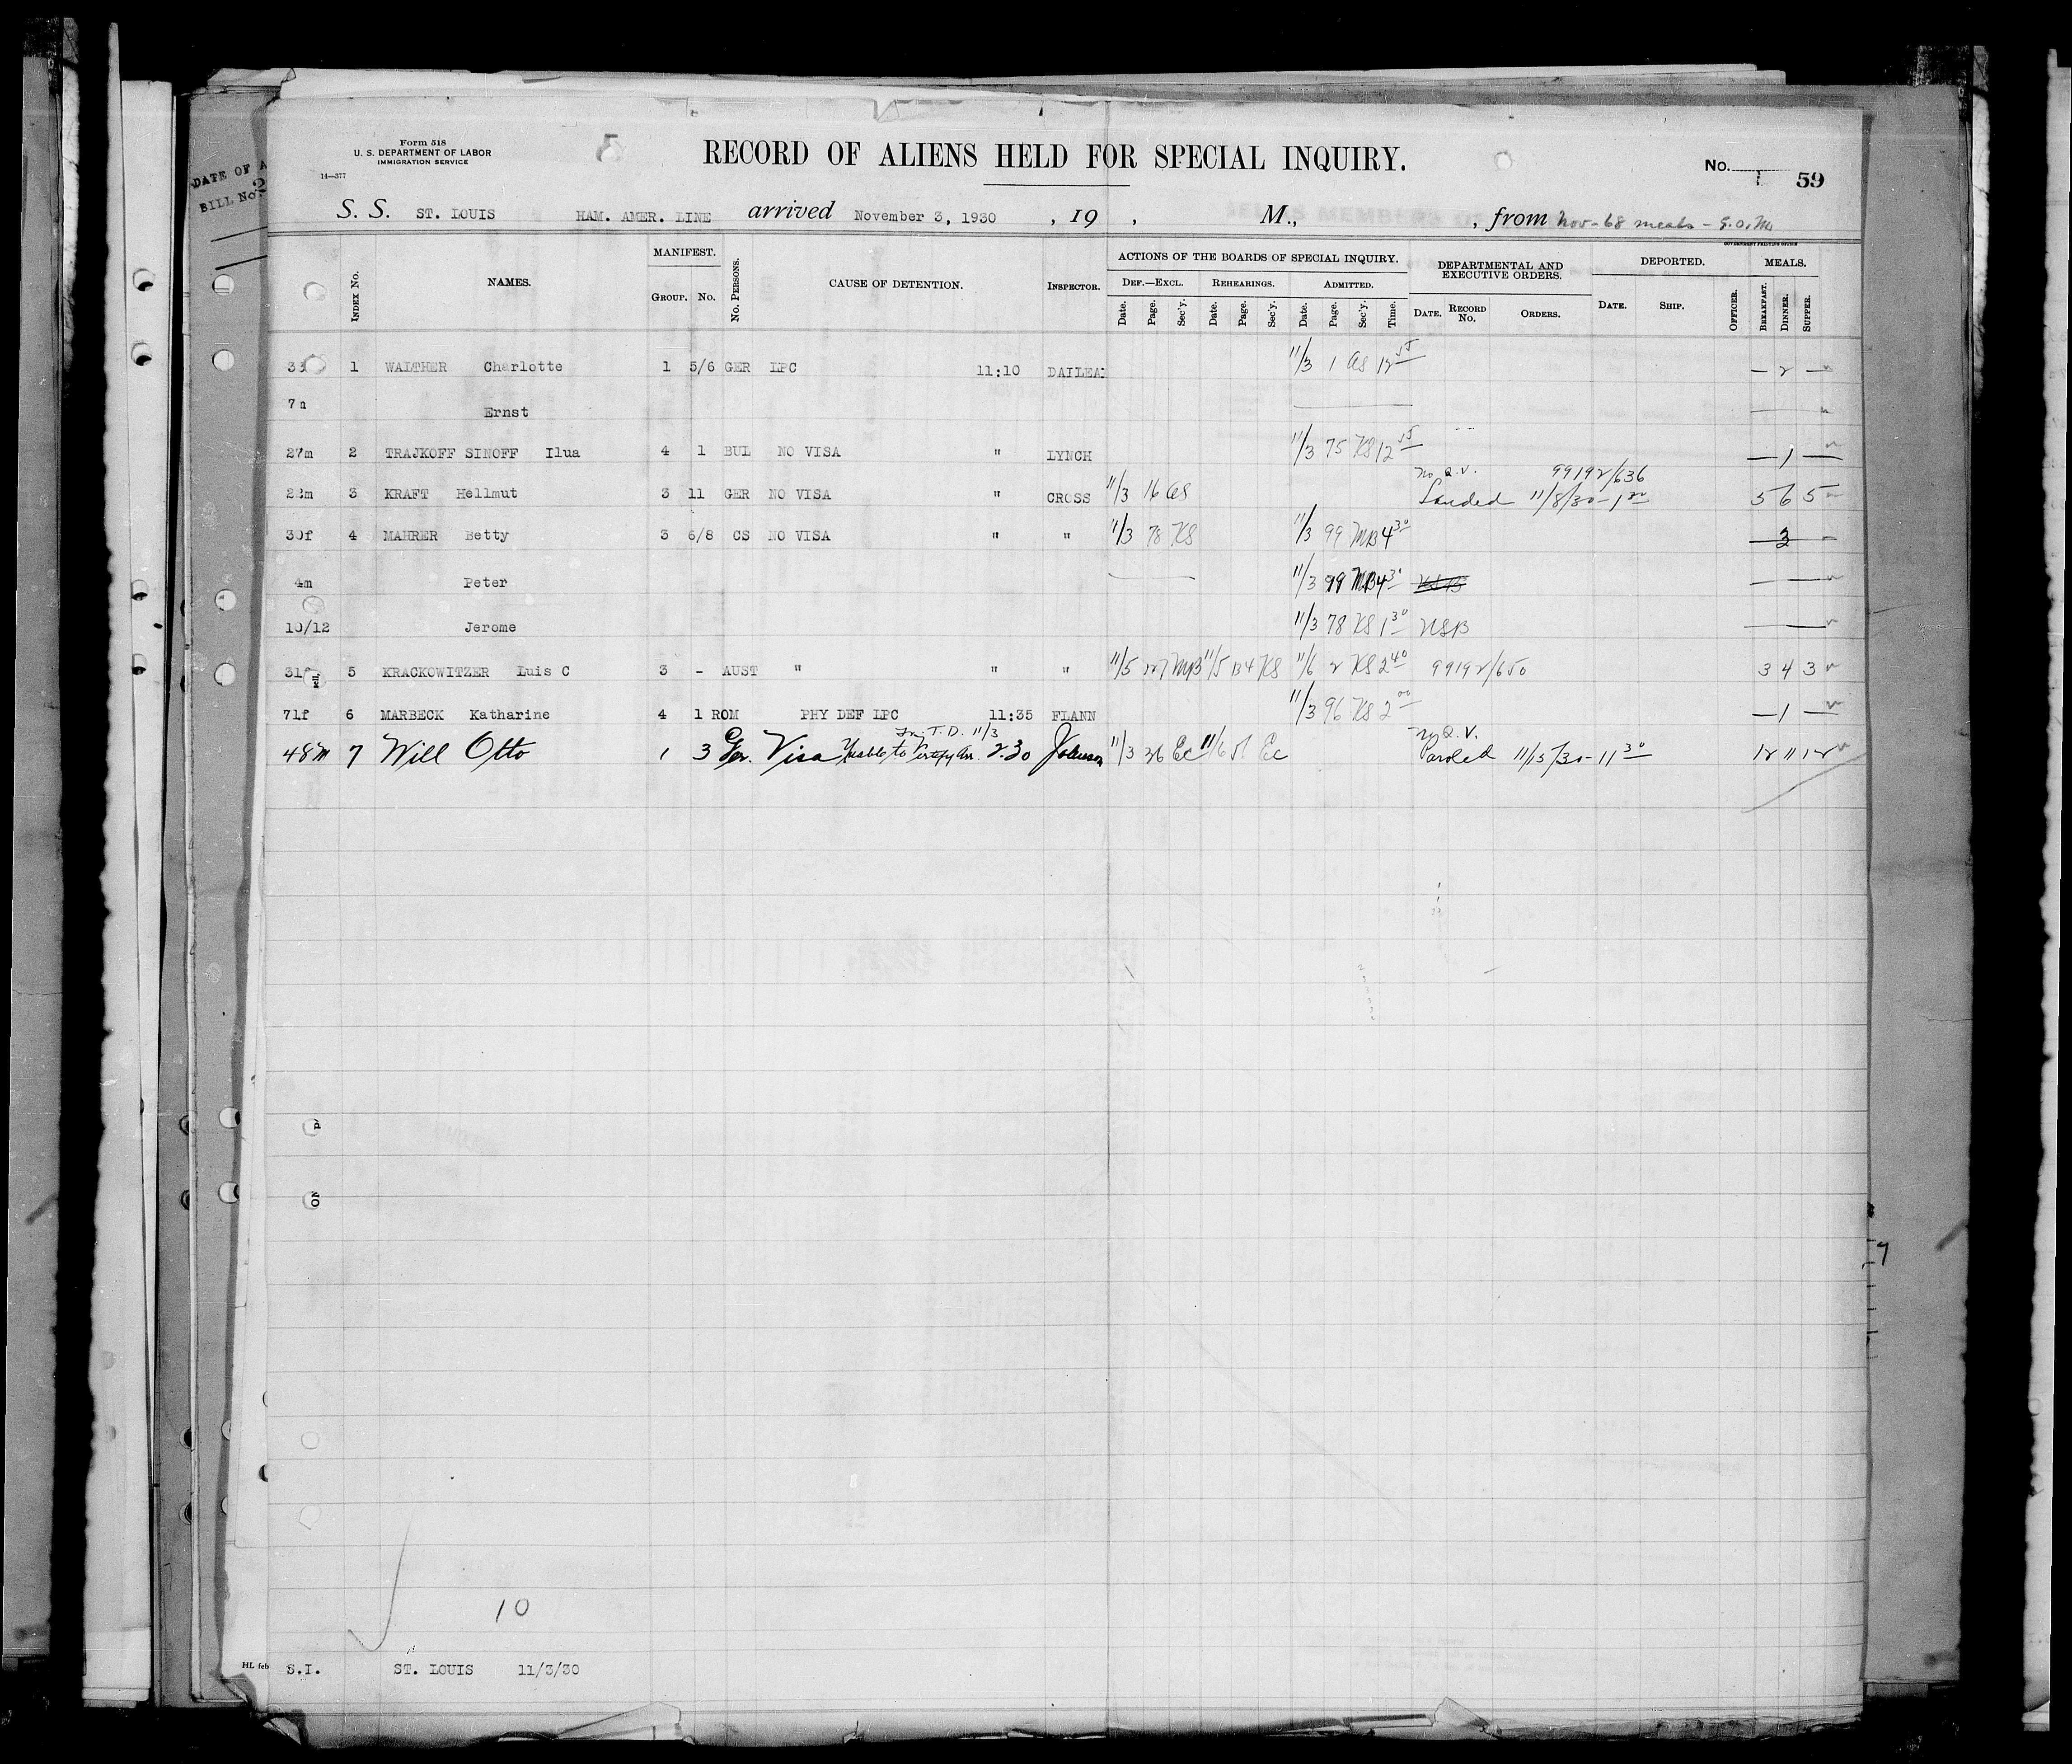 DATE OF A
BILL No. 2
Form 518
U. S. DEPARTMENT OF LABOR
IMMIGRATION SERVICE
14—377
RECORD OF ALIENS HELD FOR SPECIAL INQUIRY.
No. 1 59
S. S. ST. LOUIS HAM. AMER. LINE arrived November 3, 1930 , 19 , M., , from Nov-68 meals -
GOVERNMENT PRINTING OFFICE
INDEX No. NAMES. MANIFEST. GROUP. No. No. PERSONS. CAUSE OF DETENTION. INSPECTOR. ACTIONS OF THE BOARDS OF SPECIAL INQUIRY. DEPARTMENTAL AND EXECUTIVE ORDERS. DEPORTED. MEALS.
DEF.—EXCL. REHEARINGS. ADMITTED.
Date. Page. Sec'y. Date. Page. Sec'y. Date. Page. Sec'y. Time. DATE. RECORD No. ORDERS. DATE. SHIP. OFFICER. BREAKFAST. DINNER. SUPPER.
1 WALTHER Charlotte 1 5/6 GER LPC 11:10 DAILEA 11/3 1 as 12 55 — 2 —
Ernst
27m 2 TRAJKOFF SINOFF Ilua 4 1 BUL NO VISA " LYNCH 11/3 75 KS 12 55 — 1 —
No Q.V. 99192/636
3 KRAFT Hellmut 3 11 GER NO VISA " CROSS 11/3 16 as Landed 11/8/30 - 1 5 6 5
30f 4 MAHRER Betty 3 6/8 CS NO VISA " " 11/3 78 KS 11/3 99 MB 4 30
4m Peter 11/3 99 MB 4 30
10/12 Jerome 11/3 78 KS 1 30 USB
5 KRACKOWITZER Luis C 3 - AUST " " " 11/5 127 MB 11/5 134 KS 11/6 2 KS 2 40 99192/650 3 4 3
71f 6 MARBECK Katharine 4 1 ROM PHY DEF LPC 11:35 FLANN 11/3 96 KS 2 00 — 1 —
T.D. 11/3 Q.V.
48m 7 Will Otto 1 3 Ger. Visa Unable to Verify Arr. 2.30 Johnson 11/3 26 Ec 11/6 51 Ec Paroled 11/15/30 - 11 30 12 11 12
10
HL feb
S.I. ST. LOUIS 11/3/30